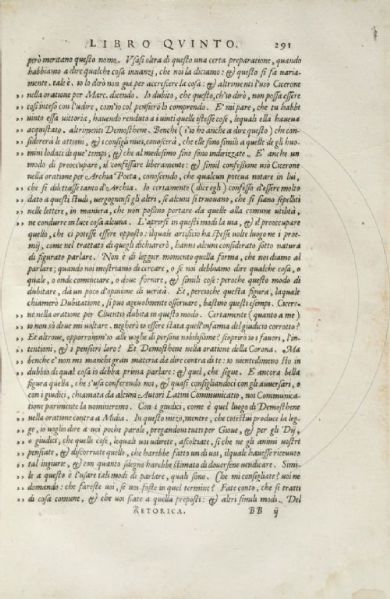 LIBRO QVINTO. 291
però meritano questo nome. Vsasi oltra di questo una certa preparatione, quando
habbiamo a dire qualche cosa innanzi, che noi la diciamo: & questo si fa uaria-
mente. tale è. io lo dirò non già per accrescere la cosa: & altrimenti l'usò Cicerone
nella oratione per Marc. dicendo. Io dubito, che questo, ch'io dirò, non possa essere
così inteso con l'udire, com'io col pensiero lo comprendo. E' mi pare, che tu habbi
uinto essa vittoria, havendo renduto a i uinti quelle istesse cose, lequali ella haueua
acquistato. altrimenti Demosthene. Benche (i'vò anche a dire questo) che con-
sidererà le attioni, & i consigli miei, conoscerà, che elle sono simili a quelle de gli huo-
mini lodati di que' tempi, & che al medesimo fine sono indirizzate. E' anche un
modo di preoccupare, il confessare liberamente: & simil confessione usò Cicerone
nella oratione per Archia Poeta, conoscendo, che qualcun poteua notare in lui,
che si dilettasse tanto d'Archia. Io certamente (dice egli) confesso d'essere molto
dato a questi studi, vergogninsi gli altri, se alcuni si truouano, che si siano sepeliti
nelle lettere, in maniera, che non possino portare da quelle alla comune utilità,
ne condurre in luce cosa alcuna. L'aprirsi in questi modi la uia, & il preoccupare
quello, che ci potesse essere opposto: ilquale artificio ha spesse volte luogo ne i proe-
mij, come nel trattato di quegli dichiarerò, hanno alcuni considerato sotto natura
di figurato parlare. Non è di leggier momento quella forma, che noi diamo al
parlare: quando noi mostriamo di cercare, o se noi debbiamo dire qualche cosa, o
quale, o onde cominciare, o doue fornire, & simili cose: perche questo modo di
dubitare, dà un poco d'oppinione di uerità. Et, percioche questa figura, laquale
chiamerò Dubitatione, si può ageuolmente osseruare, bastino questi esempi. Cicero-
ne nella oratione per Cluentio dubita in questo modo. Certamente (quanto a me)
io non sò doue mi uoltare. negherò io essere stata quell'infamia del giudicio corrotto?
Et altroue, opporrommi io alle uoglie di persone nobilissime? scoprirò io i fauori, l'in-
tentioni, & i pensieri loro? Et Demosthene nella oratione della Corona. Ma
benche e' non me manchi gran materia da dire contra di te: io nientedimeno stò in
dubbio di qual cosa io debba prima parlare: & quel, che segue. E ancora bella
figura quella, che s'usa conferendo noi, & quasi consigliandoci con gli auuersari, o
con i giudici, chiamata da alcuni Autori Latini Communicatio, noi Communica-
tione parimente la nomineremo. Con i giudici, come è quel luogo di Demosthene
nella oratione contra a Midia. In questo mezo, mentre, che costui produce la leg-
ge, io uoglio dire a uoi poche parole, pregandoui tutti per Gioue, & per gli Dij,
o giudici, che quelle cose, lequali uoi udirete, ascoltiate, sì che ne gli animi uostri
pensiate, & discorriate quello, che harebbe fatto un di uoi, ilquale hauesse riceuuto
tal ingiurie, & con quanto sdegno harebbe stimato di douersene uendicare. Simi-
le a questo è l'usare tali modi di parlare, quali sono. Che mi consigliate? uoi ne
domando: che fareste uoi, se uoi foste in quel termine? Fate conto, che si tratti
di cosa comune, & che uoi siate a quella preposti: & altri simili modi. Del
RETORICA. BB ij